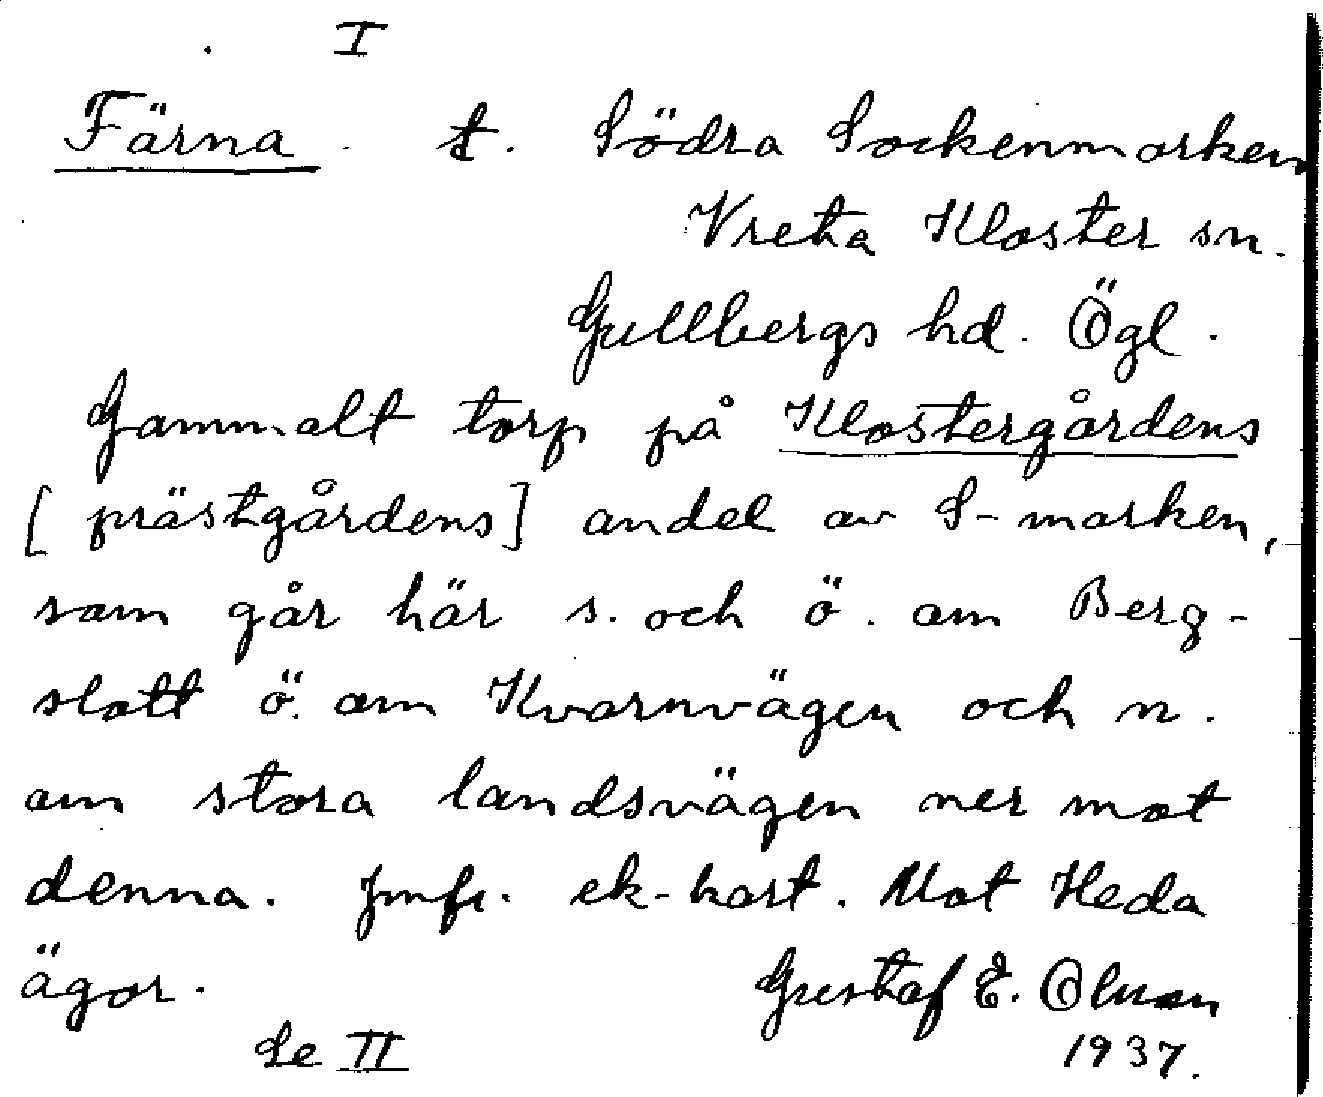 I
Färna t. Södra Sockenmarken
Vreta Kloster sn.
Gullbergs hd. Ögl.
Gammalt torp på Klostergårdens
[prästgårdens] andel av S-marken,
som går här s. och ö. om Berg-
slott ö. om Kvarnvägen och n.
om stora landsvägen ner mot
denna. Jmfr. ek-kart. Mot Heda
ägor. Gustaf E. Olman
Se II 1937.